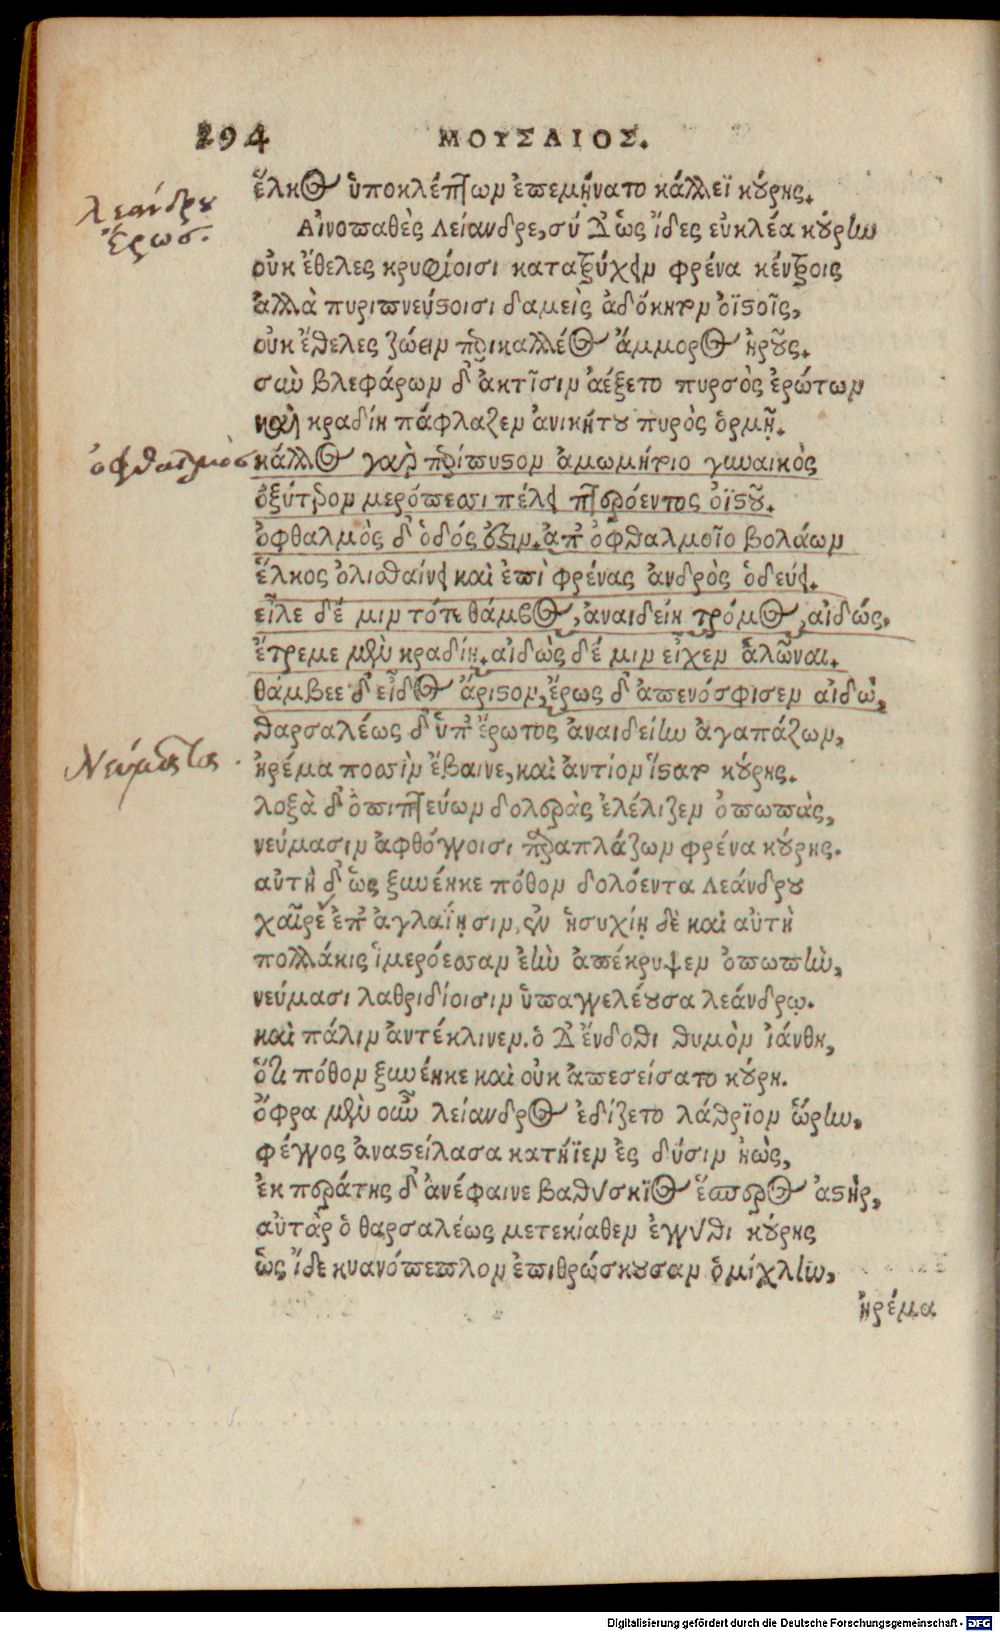 294 ΜΟΥΣΑΙΟΣ.
ἕλκος ὑποκλέπτων ἐπεμήνατο κάλλεϊ κούρης.
λεάνδρου
ἔρως.
Αἰνοπαθὲς Λείανδρε, σὺ δ' ὡς ἴδες εὐκλέα κούρην
οὐκ ἔθελες κρυφίοισι κατατρύχειν φρένα κέντροις
ἀλλὰ πυριπνεύστοισι δαμεὶς ἀδόκητον ὀϊστοῖς,
οὐκ ἔθελες ζώειν περικαλλέος ἄμμορος ἡροῦς.
σὺν βλεφάρων δ' ἀκτῖσιν ἀέξετο πυρσὸς ἐρώτων
καὶ κραδίη πάφλαζεν ἀνικήτου πυρὸς ὁρμῇ.
ὀφθαλμὸς
κάλλος γὰρ περίπυστον ἀμωμήτοιο γυναικὸς
ὀξύτερον μερόπεσσι πέλει πτερόεντος ὀϊστοῦ.
ὀφθαλμὸς δ' ὁδός ἐστιν. ἀπ' ὀφθαλμοῖο βολάων
ἕλκος ὀλισθαίνει καὶ ἐπὶ φρένας ἀνδρὸς ὁδεύει.
εἷλε δέ μιν τότε θάμβος, ἀναιδείη τρόμος, αἰδώς.
ἔτρεμε μὲν κραδίη. αἰδὼς δέ μιν εἶχεν ἁλῶναι.
θάμβεε δ' εἶδος ἄριστον, ἔρως δ' ἀπενόσφισεν αἰδῶ,
θαρσαλέως δ' ὑπ' ἔρωτος ἀναιδείην ἀγαπάζων,
ἠρέμα ποσσὶν ἔβαινε, καὶ ἀντίον ἵστατο κούρης.
λοξὰ δ' ὀπιπτεύων δολερὰς ἐλέλιζεν ὀπωπὰς,
νεύμασιν ἀφθόγγοισι παραπλάζων φρένα κούρης.
αὐτὴ δ' ὡς ξυνέηκε πόθον δολόεντα Λεάνδρου
χαῖρε ἐπ' ἀγλαΐῃσιν, ἐν ἡσυχίῃ δὲ καὶ αὐτὴ
πολλάκις ἱμερόεσσαν ἑὴν ἀπέκρυψεν ὀπωπὴν,
νεύμασι λαθριδίοισιν ὑπαγγελέουσα λεάνδρῳ.
καὶ πάλιν ἀντέκλινεν. ὁ δ' ἔνδοθι θυμὸν ἰάνθη,
ὅτι πόθον ξυνέηκε καὶ οὐκ ἀπεσείσατο κούρη.
ὄφρα μὲν οὖν λείανδρος ἐδίζετο λάθρϊον ὥρην,
φέγγος ἀναστείλασα κατήϊεν ἐς δύσιν ἠὼς,
ἐκ περάτης δ' ἀνέφαινε βαθύσκϊος ἕσπερος ἀστὴρ,
αὐτὰρ ὁ θαρσαλέως μετεκίαθεν ἐγγύθι κούρης
ὡς ἴδε κυανόπεπλον ἐπιθρώσκουσαν ὁμίχλην,
ἠρέμα
Digitalisierung gefördert durch die Deutsche Forschungsgemeinschaft - DFG